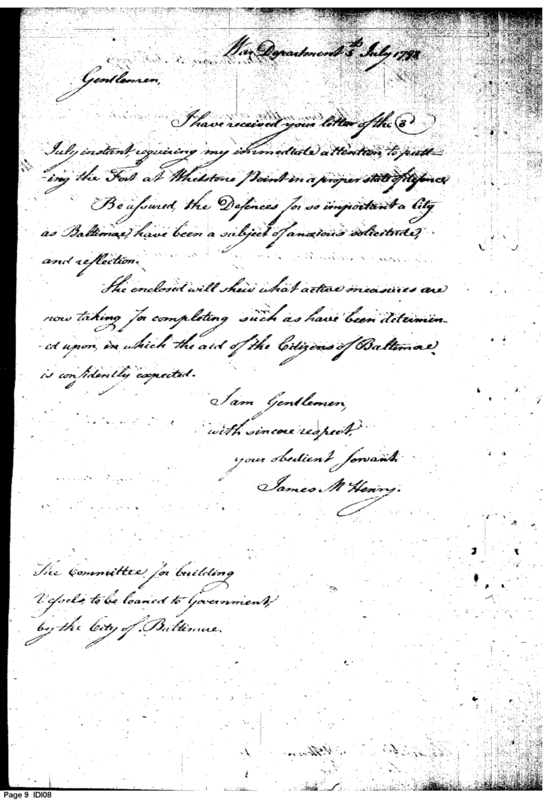 War Department 5th July 1798
Gentlemen,
I have received your letter of the 3d
July instant requiring my immediate attention to putt=
-ing the Fort at Whetstone Point in a proper state of defence
Be assured, the Defences for so important a City
as Baltimore, have been a subject of anxious solicitude,
and reflection.
The enclosed will shew what active measures are
now taking for completing such as have been determin-
-ed upon, in which the aid of the Citizens of Baltimore,
is confidently expected.
I am Gentlemen,
with sincere respect,
your obedient servant
James McHenry.
The Committee for building
Vessels, to be loaned to Government,
by the City of Baltimore.
Page 9 IDI08